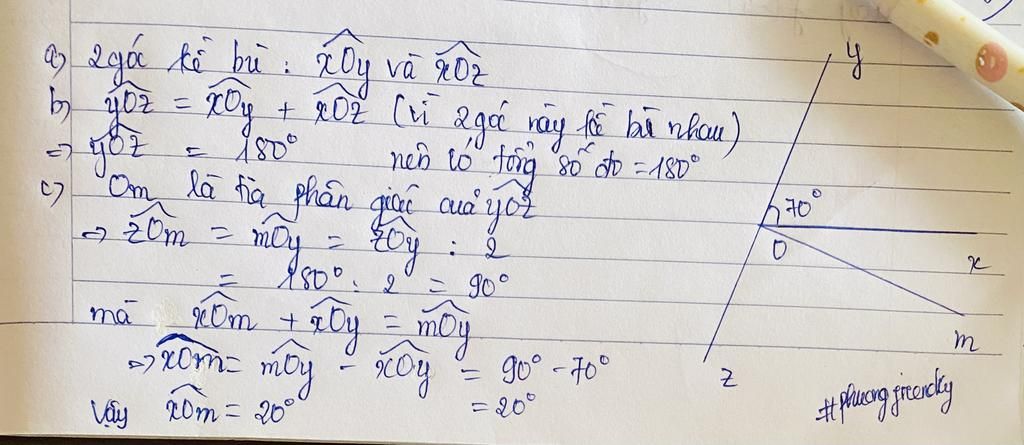 a) 2 góc kề bù : xÔy và xÔz
b) yÔz = xÔy + xÔz (vì 2 góc này kề bù nhau)
=> yÔz = 180° nên có tổng số đo = 180°
c) Om là tia phân giác của yÔz
=> zÔm = mÔy = zÔy : 2
= 180° : 2 = 90°
mà xÔm + xÔy = mÔy
=> xÔm = mÔy - xÔy = 90° - 70°
= 20°
Vậy xÔm = 20°
y
70°
O
x
m
z